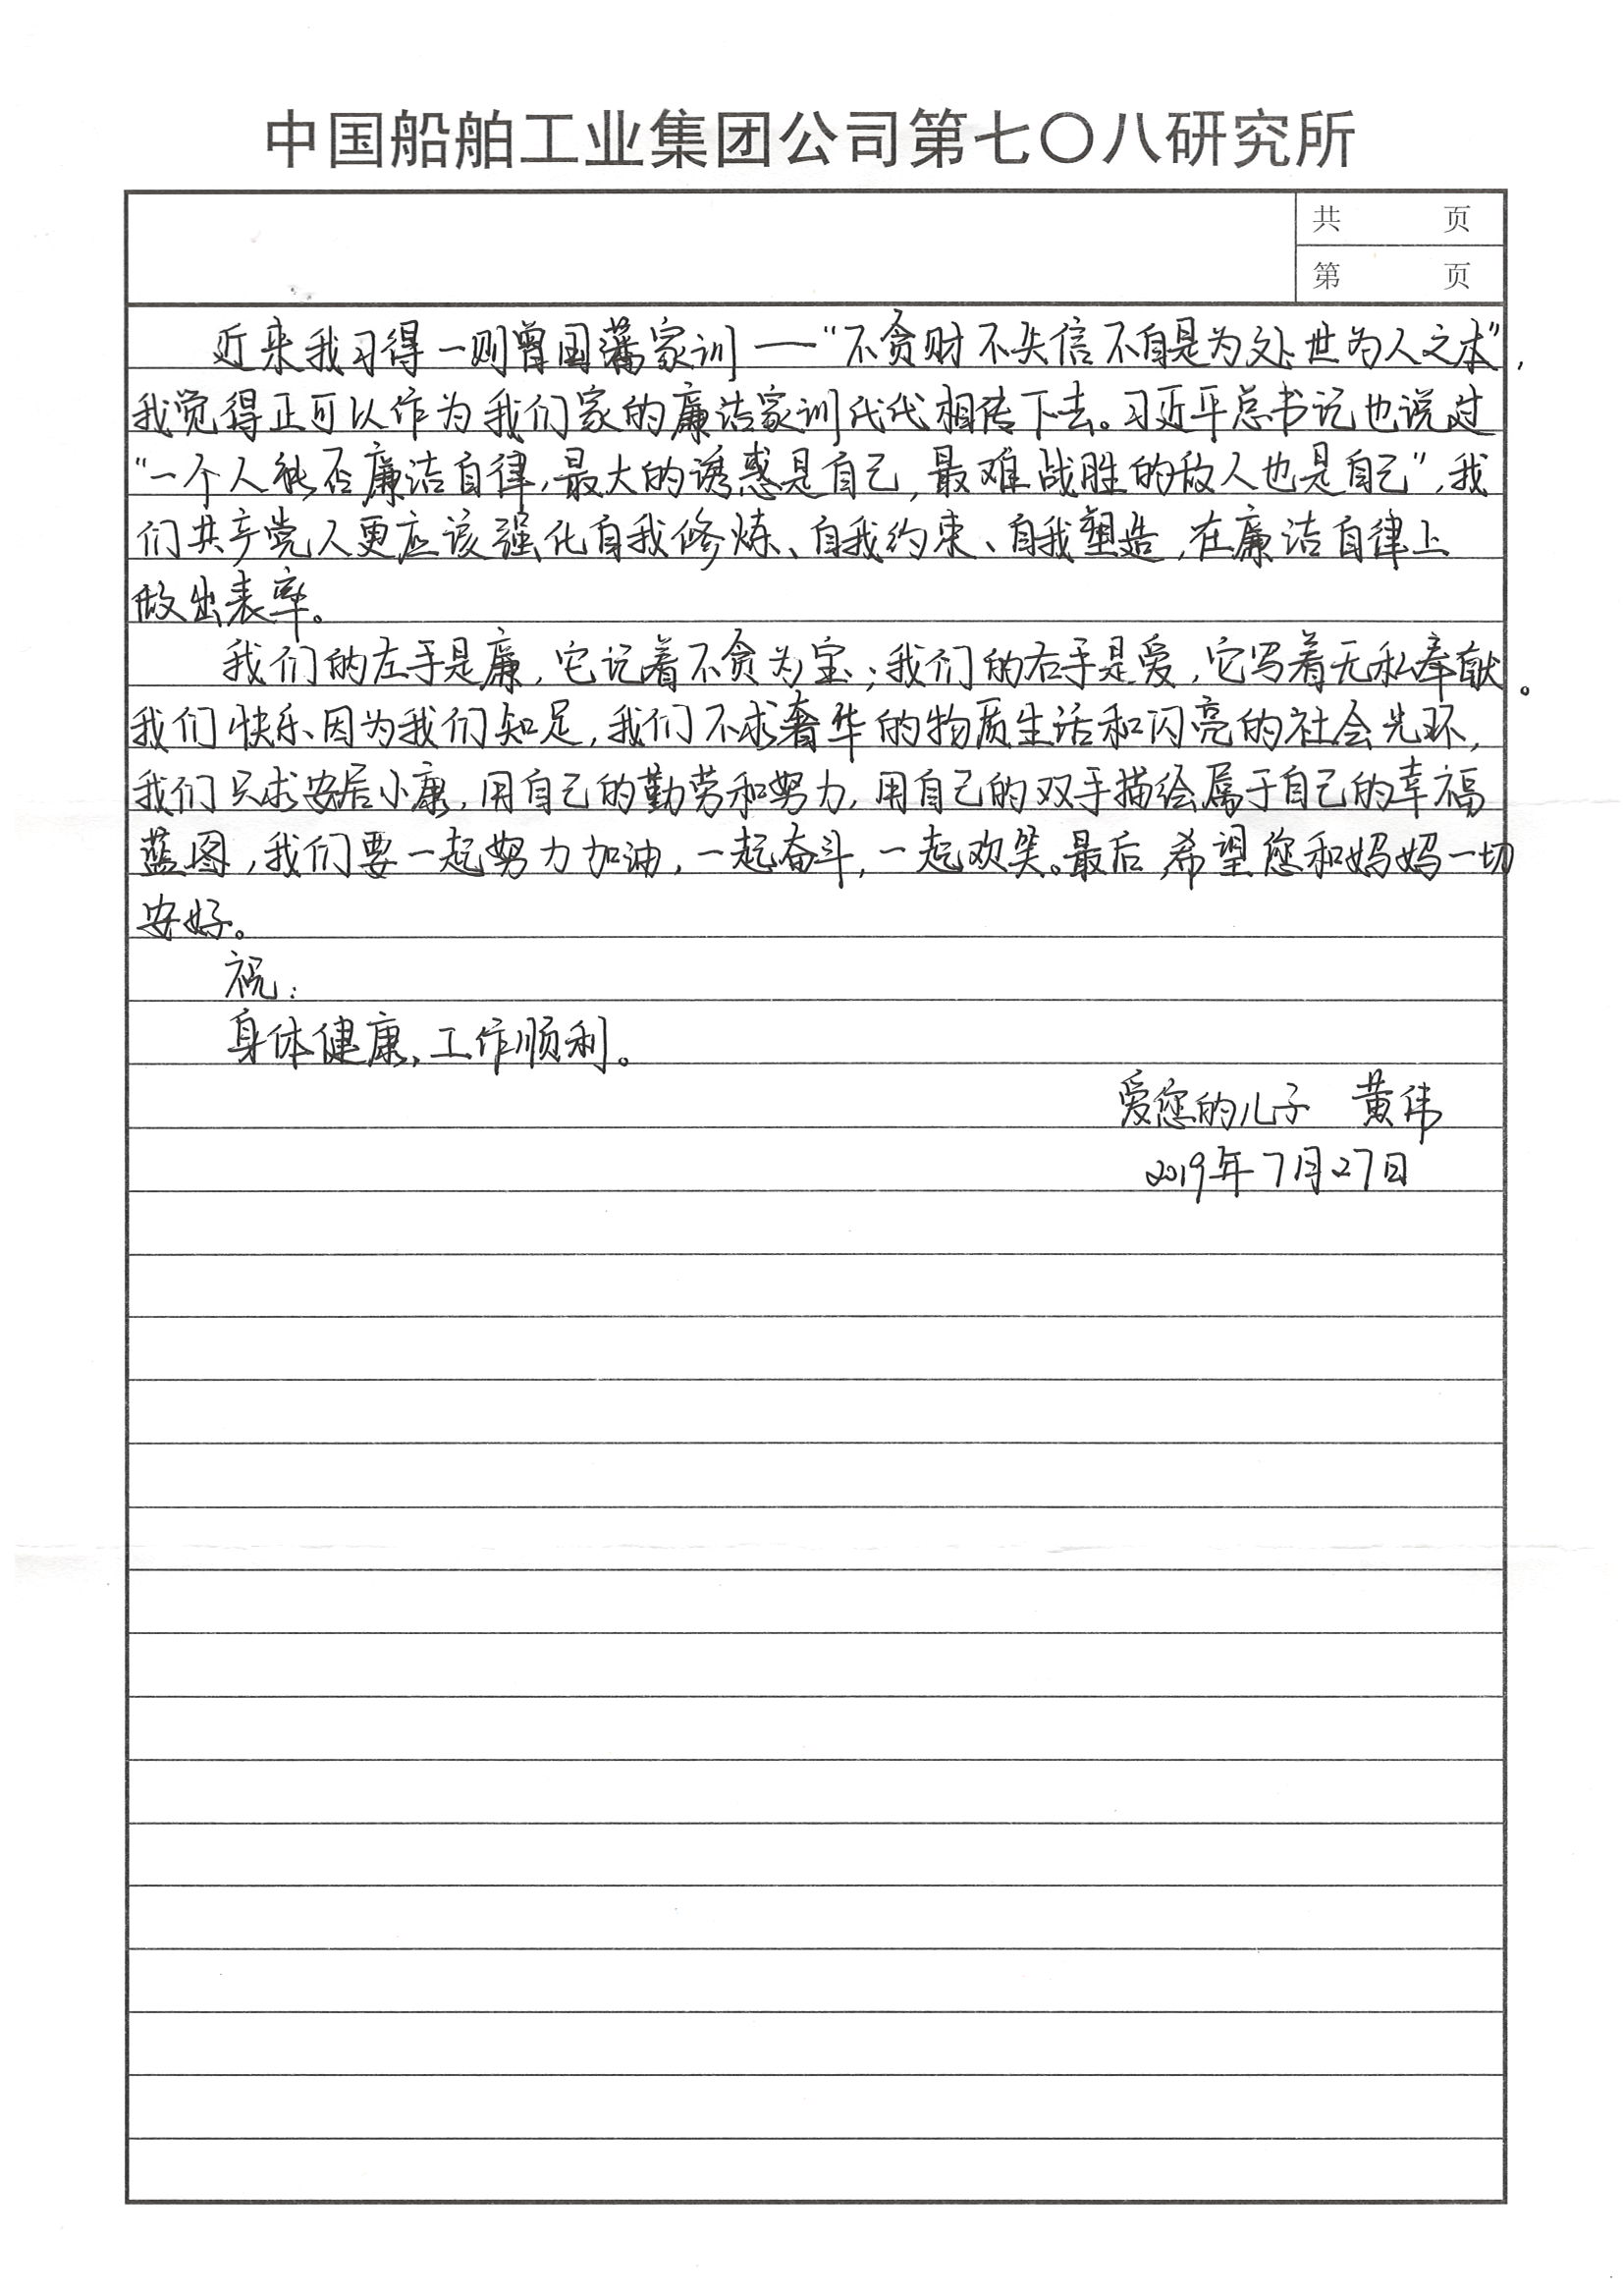 中国船舶工业集团公司第七〇八研究所
共 页
第 页
近来我习得一则曾国藩家训——“不贪财不失信不自是为处世为人之本”，
我觉得正可以作为我们家的廉洁家训代代相传下去。习近平总书记也说过
“一个人能否廉洁自律，最大的诱惑是自己，最难战胜的敌人也是自己”，我
们共产党人更应该强化自我修炼、自我约束、自我塑造，在廉洁自律上
做出表率。
我们的左手是廉，它记着不贪为宝；我们的右手是爱，它写着无私奉献。
我们快乐因为我们知足，我们不求奢华的物质生活和闪亮的社会光环，
我们只求安居小康，用自己的勤劳和努力，用自己的双手描绘属于自己的幸福
蓝图，我们要一起努力加油，一起奋斗，一起欢笑。最后，希望您和妈妈一切
安好。
祝：
身体健康，工作顺利。
爱您的儿子 黄伟
2019年7月27日